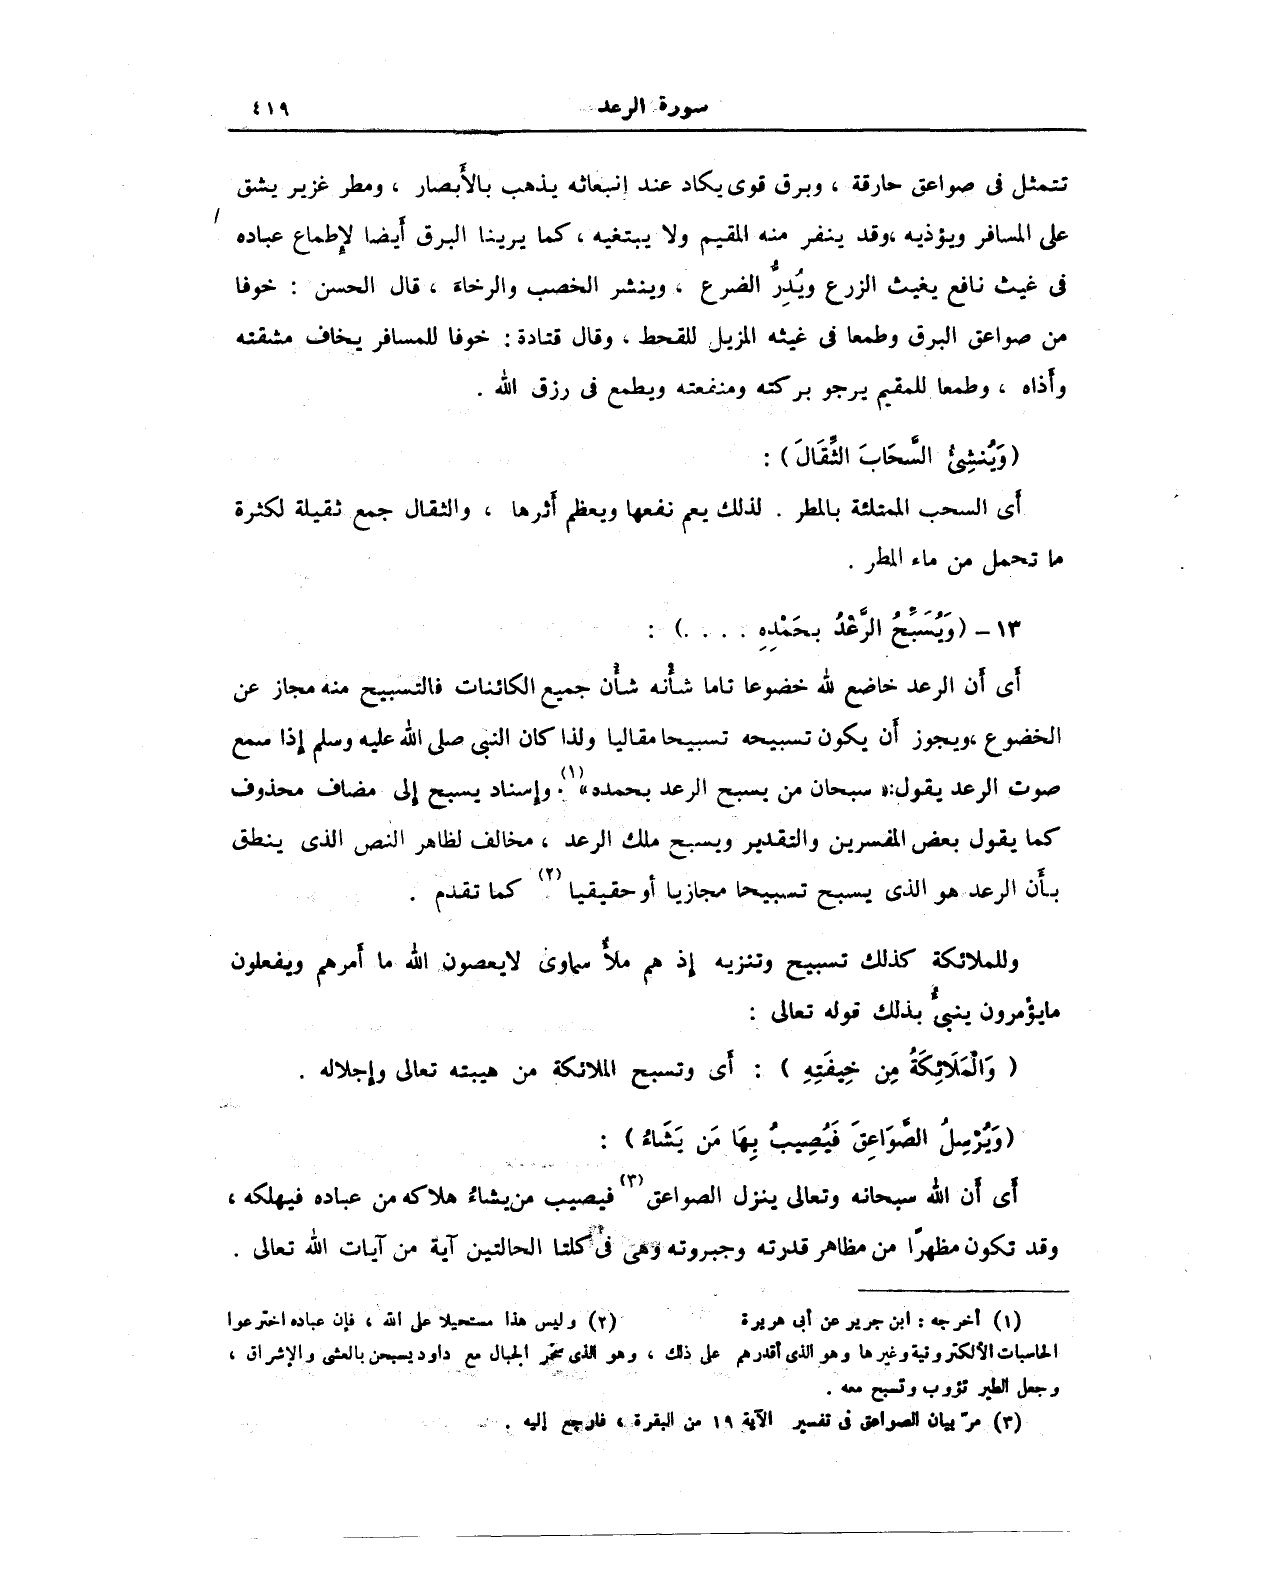 سورة الرعد ٤١٩
تتمثل فى صواعق حارقة ، وبرق قوى يكاد عند إنبعاثه يذهب بالأبصار ، ومطر غزير يشق
على المسافر ويؤذيه ،وقد ينفر منه المقيم ولا يبتغيه ، كما يرينا البرق أيضا لإطماع عباده
فى غيث نافع يغيث الزرع ويُدِرُّ الضرع ، وينشر الخصب والرخاءَ ، قال الحسن : خوفا
من صواعق البرق وطمعا فى غيثه المزيل للقحط ، وقال قتادة : خوفا للمسافر يخاف مشقته
وأذاه ، وطمعا للمقيم يرجو بركته ومنفعته ويطمع فى رزق الله .
(وَيُنشِئُ السَّحَابَ الثِّقَالَ) :
أى السحب الممتلئة بالمطر . لذلك يعم نفعها ويعظم أثرها ، والثقال جمع ثقيلة لكثرة
ما تحمل من ماء المطر .
١٣ – (وَيُسَبِّحُ الرَّعْدُ بِحَمْدِهِ . . . .) :
أى أن الرعد خاضع لله خضوعا تاما شأنه شأن جميع الكائنات فالتسبيح منه مجاز عن
الخضوع ،ويجوز أن يكون تسبيحه تسبيحا مقاليا ولذا كان النبى صلى الله عليه وسلم إذا سمع
صوت الرعد يقول:« سبحان من يسبح الرعد بحمده»(١). وإسناد يسبح إلى مضاف محذوف
كما يقول بعض المفسرين والتقدير ويسبح ملك الرعد ، مخالف لظاهر النص الذى ينطق
بأن الرعد هو الذى يسبح تسبيحا مجازيا أو حقيقيا (٢) كما تقدم .
وللملائكة كذلك تسبيح وتنزيه إذ هم ملأ سماوى لايعصون الله ما أمرهم ويفعلون
مايؤمرون ينبىُّ بذلك قوله تعالى :
( وَالْمَلَائِكَةُ مِن خِيفَتِهِ ) : أى وتسبح الملائكة من هيبته تعالى وإجلاله .
(وَيُرْسِلُ الصَّوَاعِقَ فَيُصِيبُ بِهَا مَن يَشَاءُ) :
أى أن الله سبحانه وتعالى ينزل الصواعق (٣) فيصيب من يشاءُ هلاكه من عباده فيهلكه ،
وقد تكون مظهرًا من مظاهر قدرته وجبروته وهى فى كلتا الحالتين آية من آيات الله تعالى .
(١) أخرجه : ابن جرير عن أبى هريرة (٢) وليس هذا مستحيلا على الله ، فإن عباده اخترعوا
الحاسبات الألكترونية وغيرها وهو الذى أقدرهم على ذلك ، وهو الذى سخّر الجبال مع داود يسبحن بالعشى والإشراق ،
وجعل الطير تؤوب وتسبح معه .
(٣) مرّ بيان الصواعق فى تفسير الآية ١٩ من البقرة ، فارجع إليه .